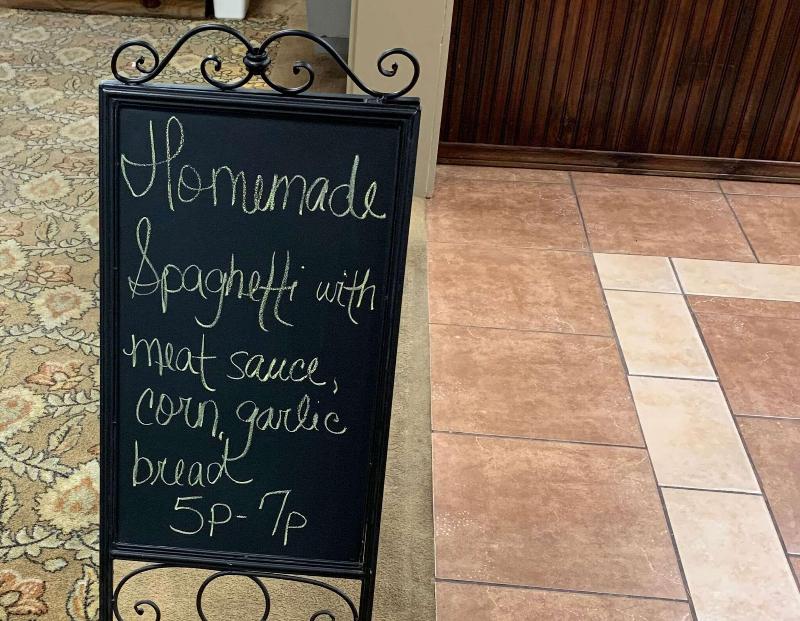 Homemade
Spaghetti with
meat sauce,
corn, garlic
bread
5p-7p